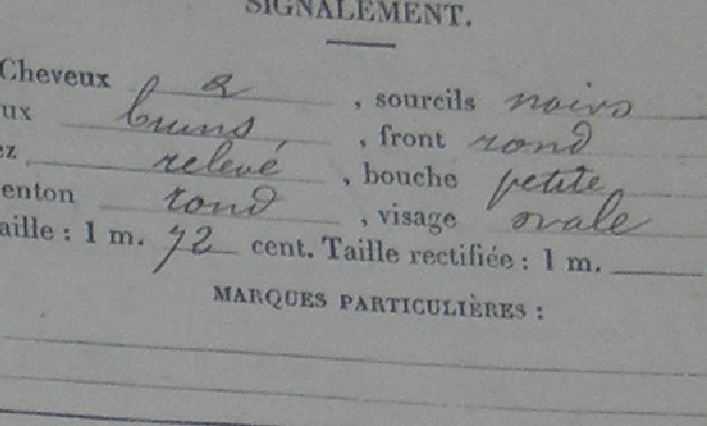 SIGNALEMENT.
Cheveux & , sourcils noirs
ux bruns, , front rond
ez relevé , bouche petite
enton rond , visage ovale
aille : 1 m. 72 cent. Taille rectifiée : 1 m.
MARQUES PARTICULIÈRES :